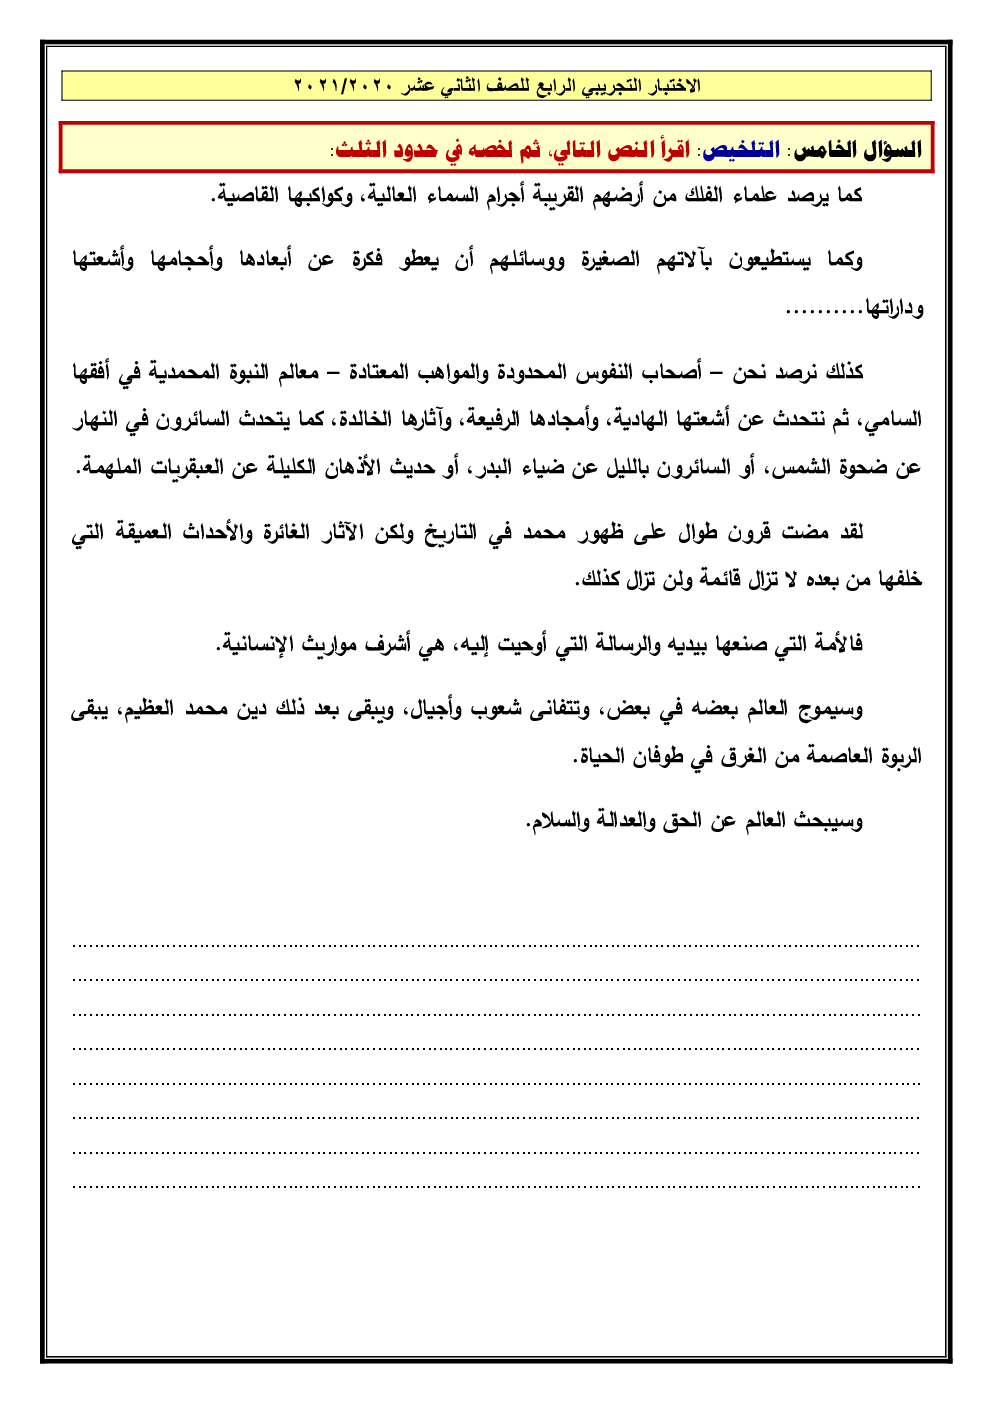 الاختبار التجريبي الرابع للصف الثاني عشر ٢٠٢١/٢٠٢٠
السؤال الخامس: التلخيص: اقرأ النص التالي، ثم لخصه في حدود الثلث:
كما يرصد علماء الفلك من أرضهم القريبة أجرام السماء العالية، وكواكبها القاصية.
وكما يستطيعون بآلاتهم الصغيرة ووسائلهم أن يعطو فكرة عن أبعادها وأحجامها وأشعتها
وداراتها..........
كذلك نرصد نحن – أصحاب النفوس المحدودة والمواهب المعتادة – معالم النبوة المحمدية في أفقها
السامي، ثم نتحدث عن أشعتها الهادية، وأمجادها الرفيعة، وآثارها الخالدة، كما يتحدث السائرون في النهار
عن ضحوة الشمس، أو السائرون بالليل عن ضياء البدر، أو حديث الأذهان الكليلة عن العبقريات الملهمة.
لقد مضت قرون طوال على ظهور محمد في التاريخ ولكن الآثار الغائرة والأحداث العميقة التي
خلفها من بعده لا تزال قائمة ولن تزال كذلك.
فالأمة التي صنعها بيديه والرسالة التي أوحيت إليه، هي أشرف مواريث الإنسانية.
وسيموج العالم بعضه في بعض، وتتفانى شعوب وأجيال، ويبقى بعد ذلك دين محمد العظيم، يبقى
الربوة العاصمة من الغرق في طوفان الحياة.
وسيبحث العالم عن الحق والعدالة والسلام.